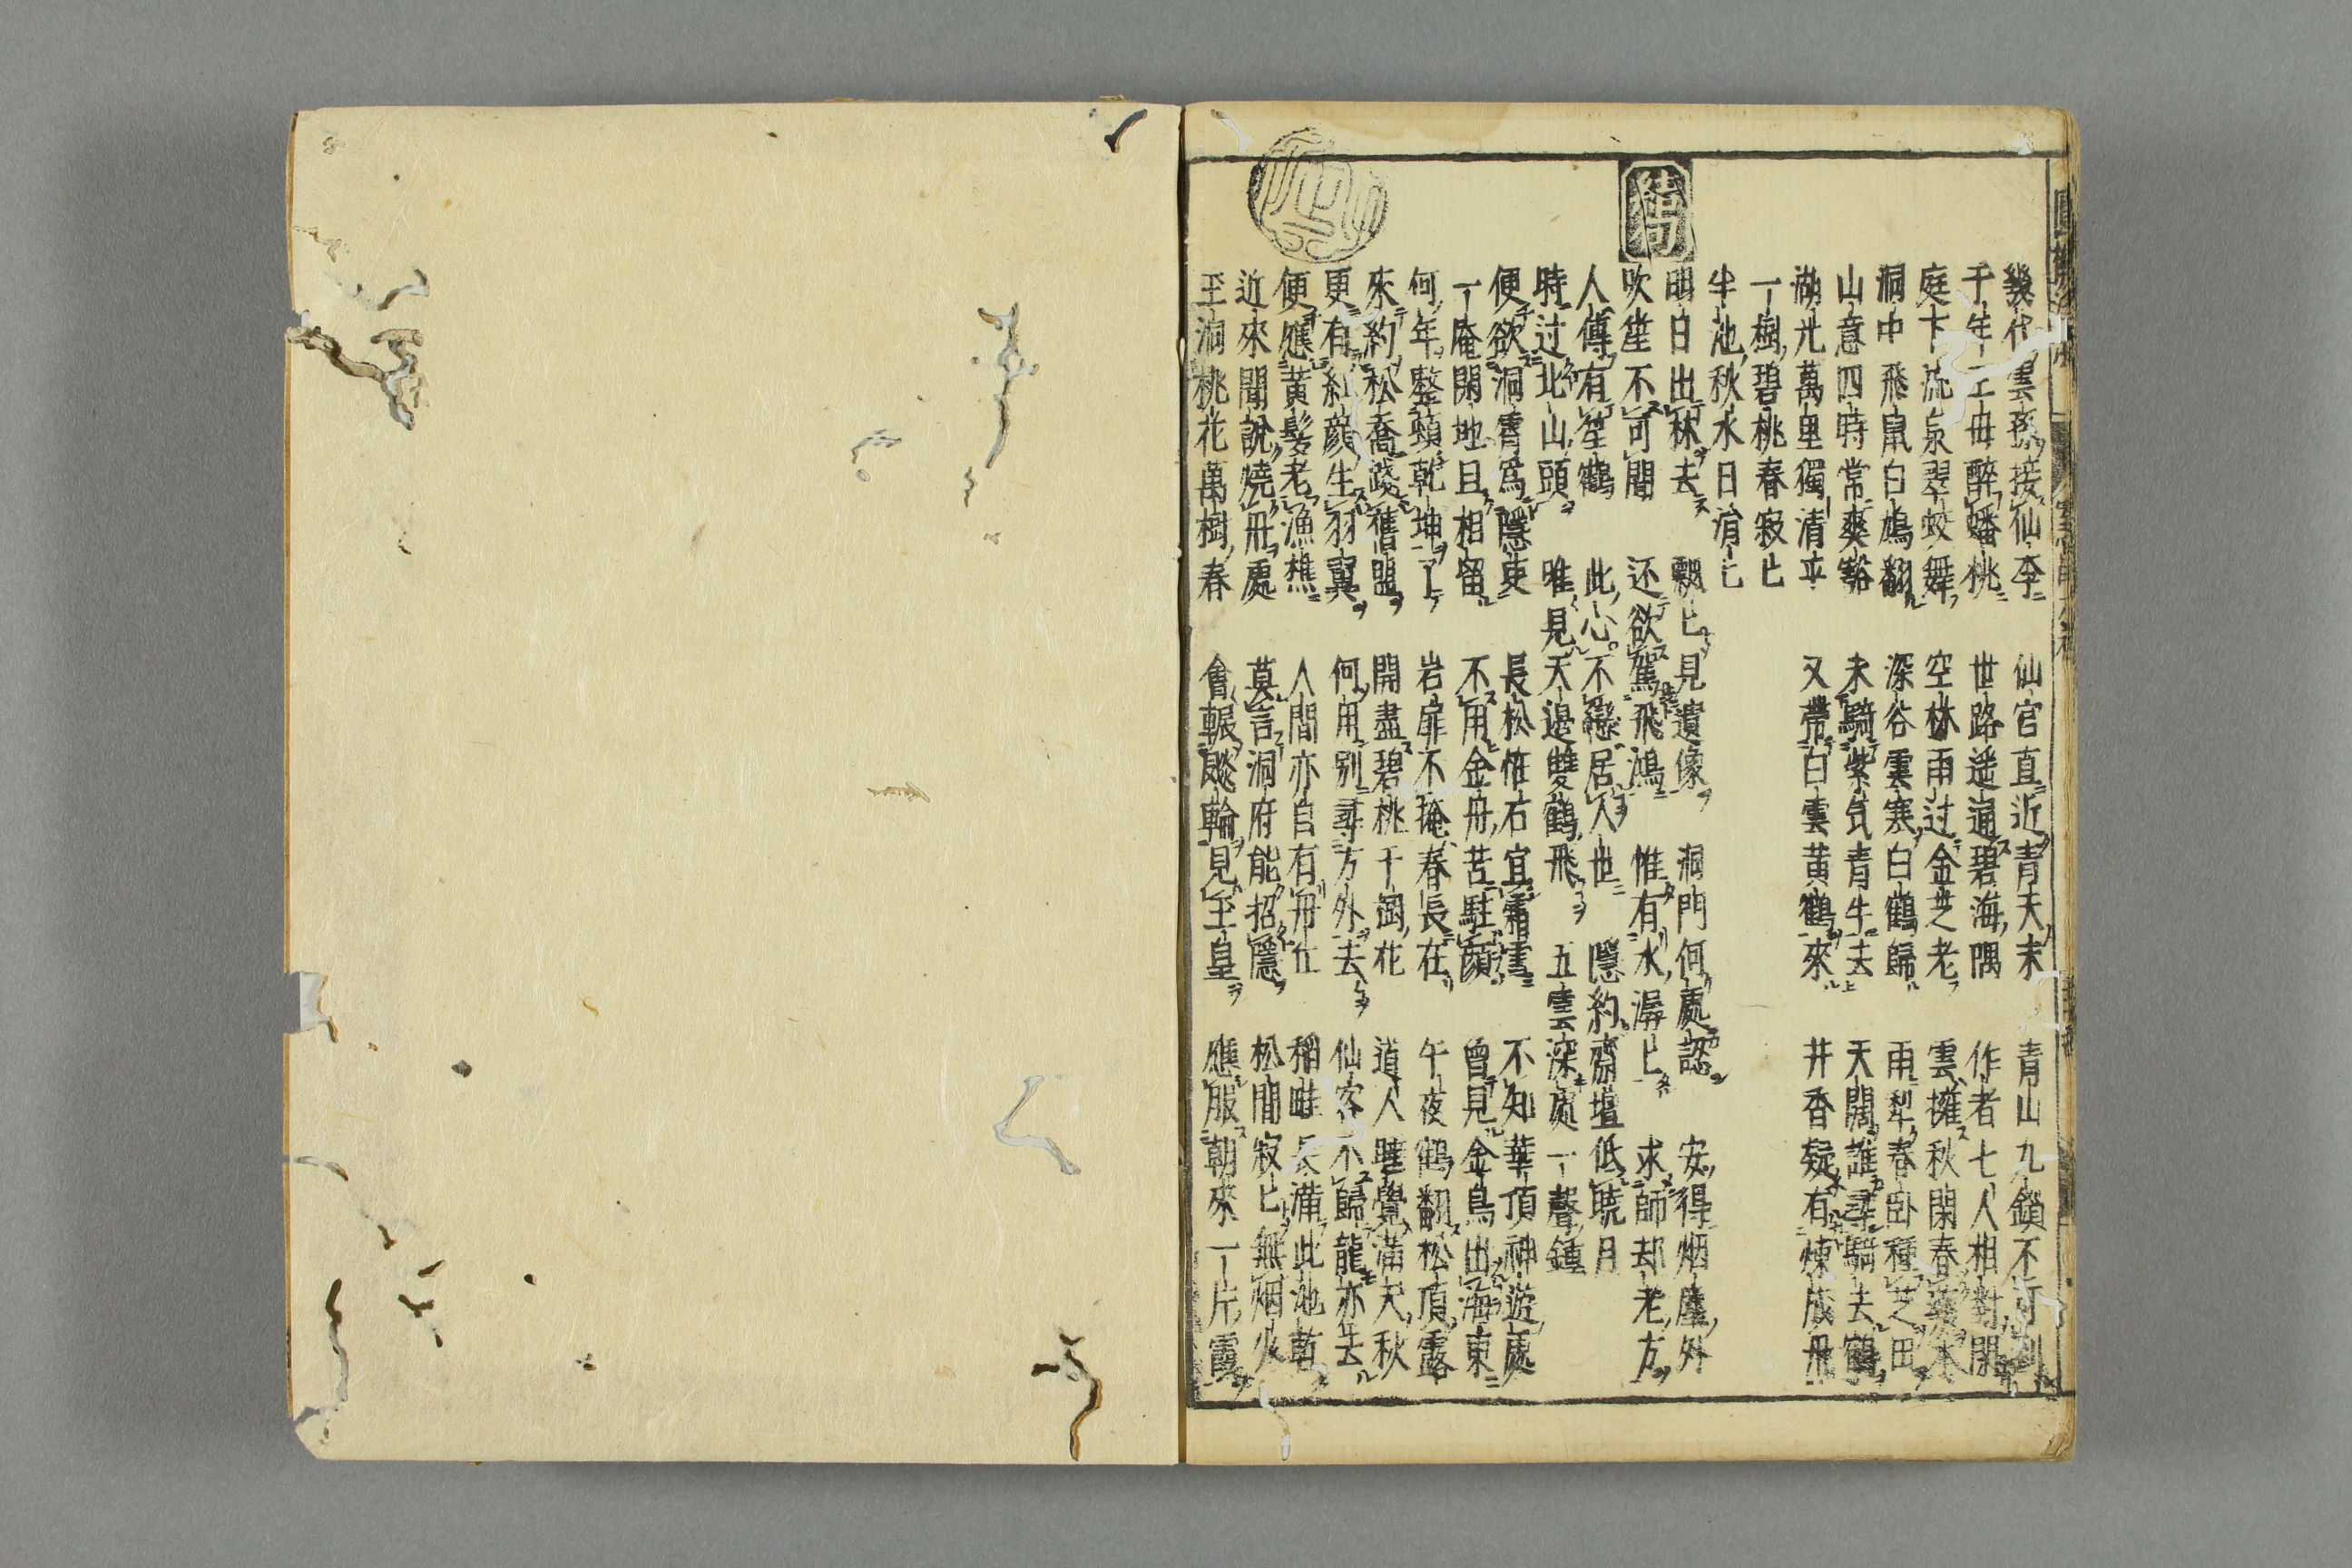 幾代雲孫接仙李　仙官直近青天末　青山九鎖不可到
千年王母醉蟠桃　世路遥通碧海隅　作者七人相對閑
庭下流泉翠蛟舞　空林雨过金芝老　雲擁秋閑春藥木
洞中飛鼠白鴉翻　深谷雲寒白鶴歸　雨犁春卧種芝田
山意四時常爽豁　未騎紫気青牛去　天闊誰尋騎去鶴
湖光萬里獨清平　又帶白雲黄鶴來　井香疑有煉成丹
一樹碧桃春寂匕
半池秋水日涓匕
結句
明日出林去　飄匕見遺像　洞門何處認　安得烟塵外
吹笙不可聞　还欲駕飛鴻　惟有水潺匕　求師却老方
人傳有笙鶴　此心不戀居人世　隱約齋壇低曉月
時过北山頭　唯見天邊雙鶴飛　五雲深處一聲鍾
便欲洞霄爲隱吏　長松恠石宜霜霅　不知華頂神遊處
一庵閑地且相留　不用金丹苦駐顔　曾見金烏出海東
何年整頓乾坤了　岩扉不掩春長在　午夜鶴翻松頂露
來約松喬踐舊盟　開盡碧桃千澗花　道人睡覺滿天秋
更有紅顔生羽翼　何用別尋方外去　仙客不歸龍亦去
便應黄髪老漁樵　人間亦自有丹丘　稻畦長滿此池乾
近來聞說燒丹處　莫言洞府能招隱　松間寂匕無烟火
玉洞桃花萬樹春　會輾飈輪見玉皇　應服朝來一片霞